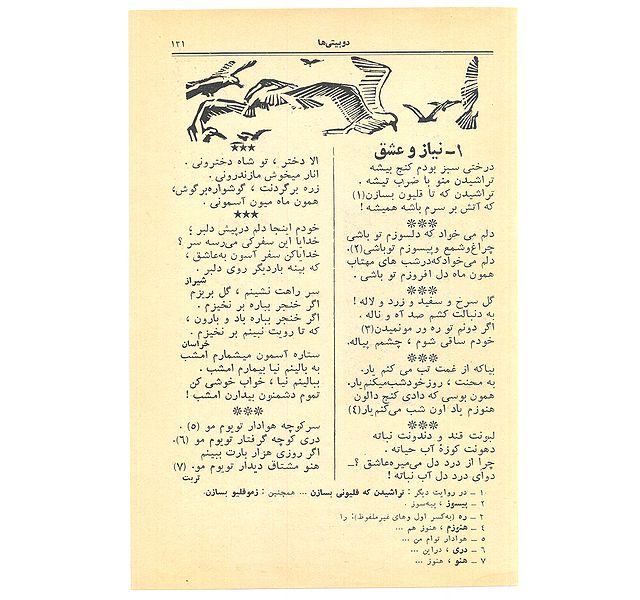 دوبیتی‌ها
۱۳۱
۱ـ نیاز و عشق
درختی سبز بودم کنج بیشه
تراشیدن منو با ضرب تیشه .
تراشیدن که تا قلیون بسازن(۱)
که آتش بر سرم باشه همیشه !
❊❊❊
دلم می خواد که دلسوزم تو باشی
چراغ‌وشمع وپیسوزم توباشی(۲).
دلم می‌خوادکه‌درشب های مهتاب
همون ماه دل افروزم تو باشی .
❊❊❊
گل سرخ و سفید و زرد و لاله !
به دنبالت کشم صد آه و ناله .
اگر دونم تو ره ور مونمیدن(۳)
خودم ساقی شوم ، چشمم پیاله.
❊❊❊
بیاکه از غمت تب می کنم یار.
به محنت ، روزخودشب‌میکنم‌یار.
همون بوسی که دادی کنج دالون
هنوزم یاد اون شب می‌کنم‌یار(۴)
❊❊❊
لبونت قند و دندونت نباته
دهونت کوزهٔ آب حیاته .
چرا از درد دل می‌میره‌عاشق ؟ـ
دوای درد دل آب نباته !
★★★
الا دختر ، تو شاه دخترونی .
انار میخوش مازندرونی .
زره برگردنت ، گوشواره‌برگوش،
همون ماه میون آسمونی .
★★★
خودم اینجا دلم درپیش دلبر ؛
خدایا این سفرکی می‌رسه سر ؟
خدایاکن سفر آسون به‌عاشق ،
که بینه باردیگر روی دلبر .
شیراز
سر راهت نشینم ، گل بریزم
اگر خنجر بباره بر نخیزم .
اگر خنجر بباره باد و بارون ،
که تا رویت نبینم بر نخیزم .
خراسان
ستاره آسمون میشمارم امشب
به بالینم نیا بیمارم امشب .
ببالینم نیا ، خواب خوشی کن
تموم دشمنون بیدارن امشب !
❊❊❊
سرکوچه هوادار تویوم مو (۵) .
دری کوچه گرفتار تویوم مو (۶).
اگر روزی هزار بارت ببینم
هنو مشتاق دیدار تویوم مو. (۷)
تربت
۱ ـ در روایت دیگر : تراشیدن که قلیونی بسازن ... همچنین : زموقلیو بسازن.
۲ ـ پیسوز ، پیه‌سوز .
۳ ـ ره (به‌کسر اول وهای غیرملفوظ): را
۴ ـ هنوزم ، هنوز هم ...
۵ ـ هوادار توام من ...
۶ ـ دری ، دراین ...
۷ ـ هنو ، هنوز ...